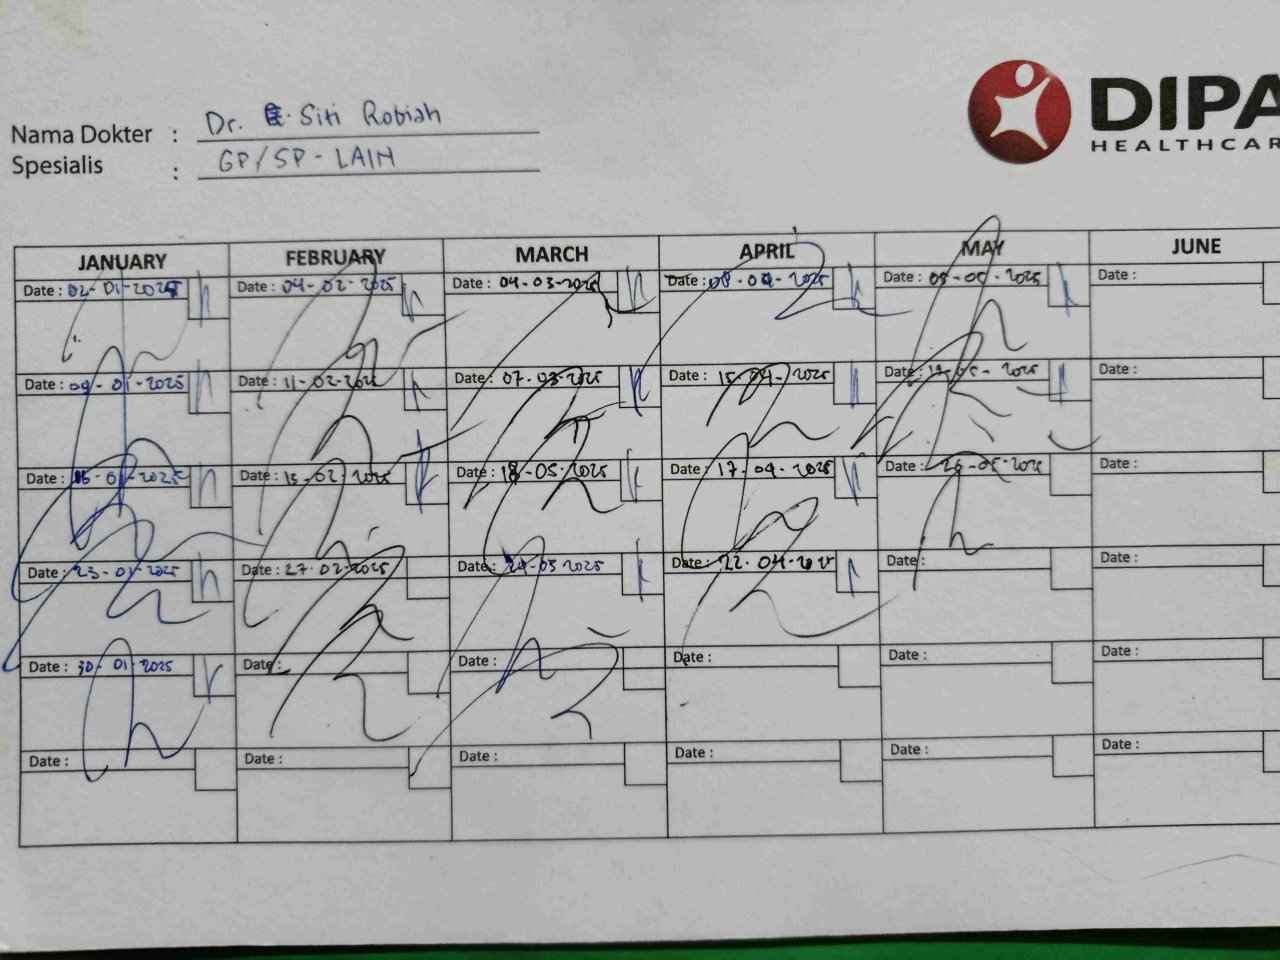 DIPA
HEALTHCAR
Nama Dokter : Dr. Siti Robiah
Spesialis : GP/SP-LAIN
JANUARY FEBRUARY MARCH APRIL MAY JUNE
Date : 02-01-2025 Date : 04-02-2025 Date : 04-03-2025 Date : 08-04-2025 Date : -2025 Date :
Date : 09-01-2025 Date : 11-02-2025 Date : 07-03-2025 Date : 15-04-2025 Date : -05-2025 Date :
Date : 16-01-2025 Date : -02-2025 Date : 18-03-2025 Date : 17-04-2025 Date : -05-2025 Date :
Date : 23-01-2025 Date : 27-02-2025 Date : -03-2025 Date : 22-04-2025 Date : Date :
Date : 30-01-2025 Date : Date : Date : Date : Date :
Date : Date : Date : Date : Date : Date :